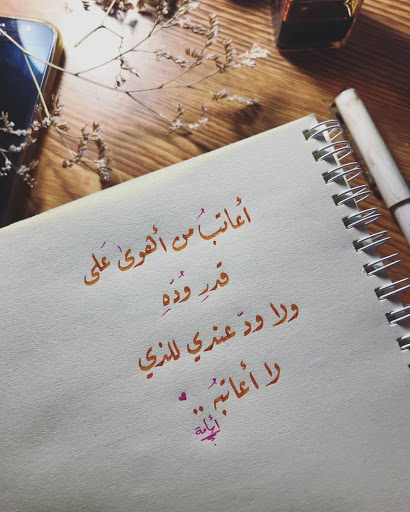 أعاتبُ من أهوىٰ عَلى
قدرِ وُدّهِ
ولا ودّ عندي للذي
لا أعاتبهُ ..